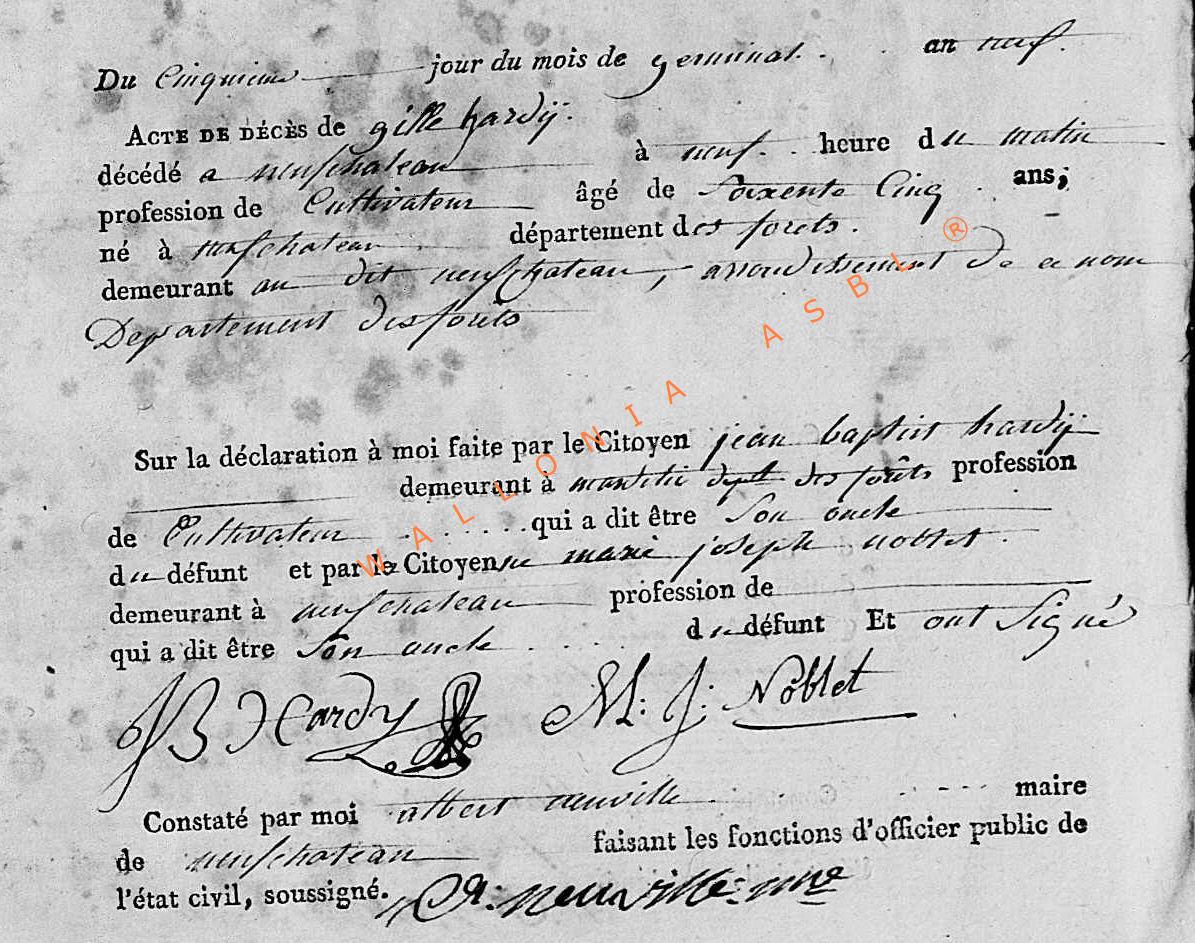 Du Cinquieme jour du mois de germinal. an neuf.
ACTE DE DÉCÈS de gille hardÿ.
décédé a neufchateau à neuf. heure du matin
profession de Cultivateur âgé de Soixente Cinq ans;
né à neufchateau département des forets.
demeurant au dit neufchateau, arrondissement de ce nom
Departement des forêts
Sur la déclaration à moi faite par le Citoyen jean baptist hardÿ
demeurant à dept des forêts profession
de Cultivateur qui a dit être Son oncle
du défunt et par la Citoyenne marie joseph noblet.
demeurant à neufchateau profession de
qui a dit être Son oncle du défunt Et ont Signé
JB Hardy M: J: Noblet
Constaté par moi albert neuville maire
de neufchateau faisant les fonctions d'officier public de
l'état civil, soussigné. A: neuville: mre
WALLONIA ASBL ®